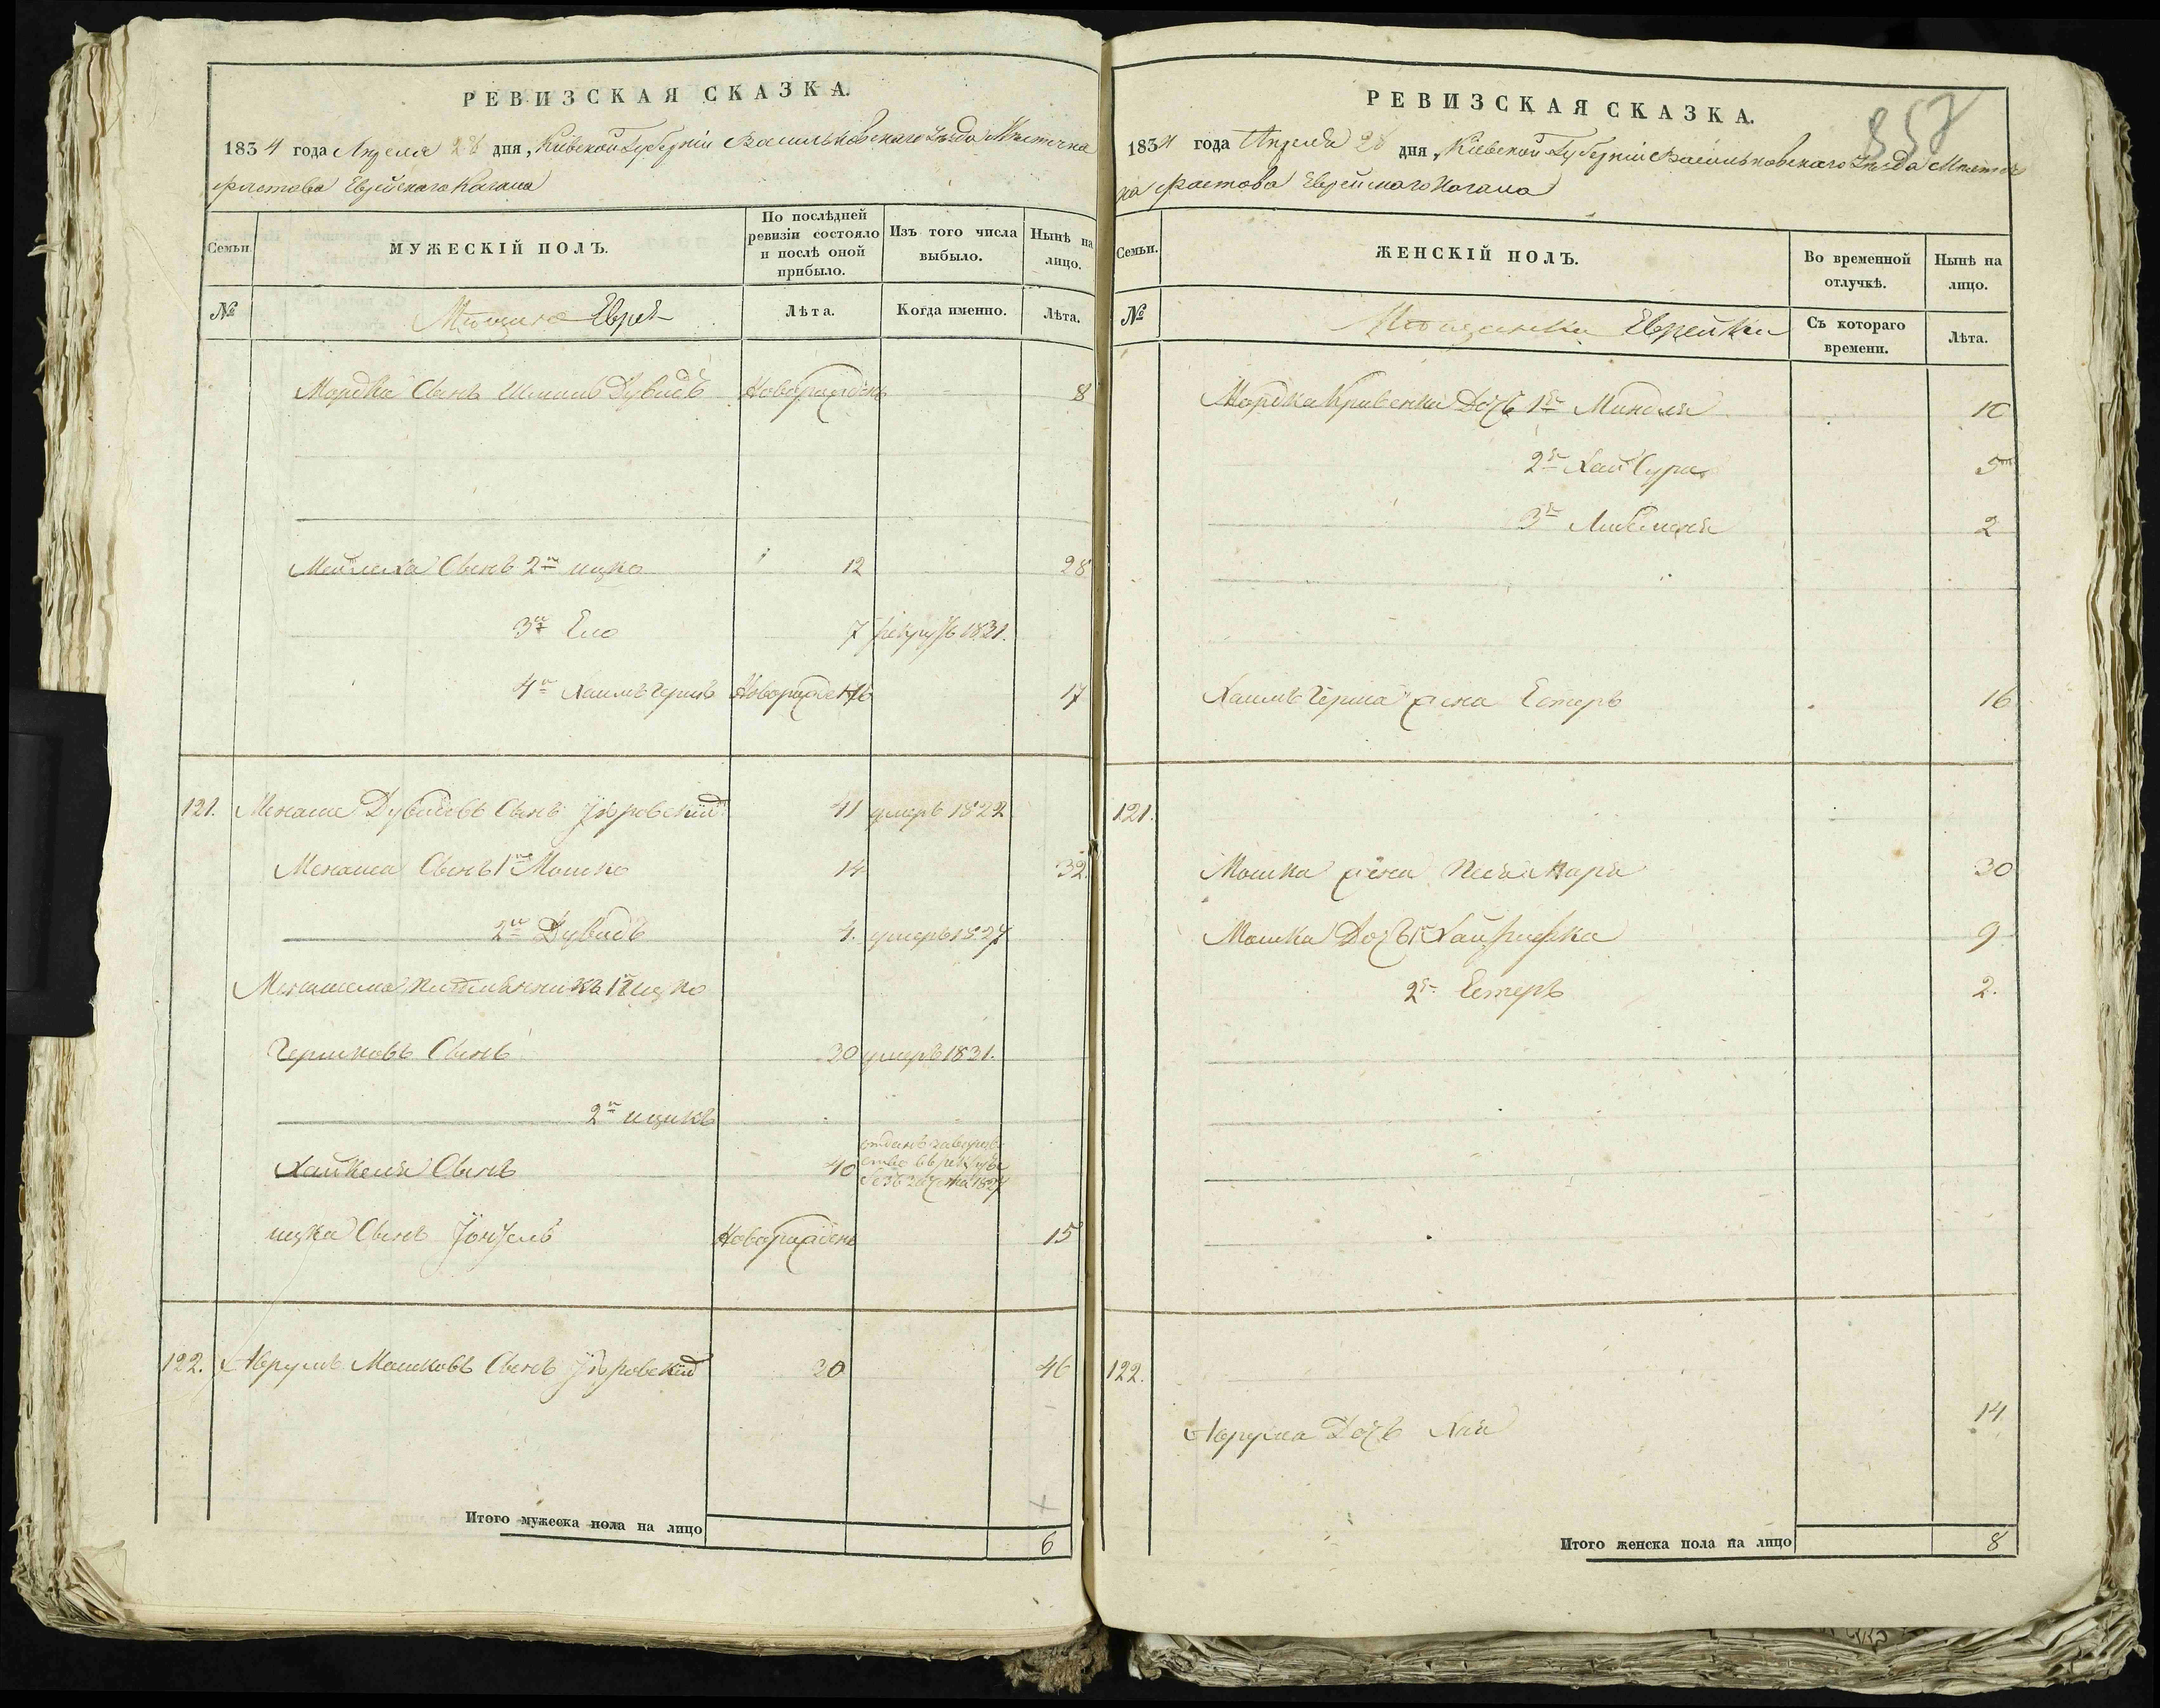 РЕВИЗСКАЯ СКАЗКА.
1834 года Апреля 28 дня, Кіевской Губерніи Васильковскаго Уѣзда Мѣстечка
Фастова Еврейскаго Кагала
Семьи
МУЖЕСКІЙ ПОЛЪ.
По послѣдней ревизіи состояло и послѣ оной прибыло.
Изъ того числа выбыло.
Нынѣ на лицо.
№
Мѣщане Евреи
Лѣта.
Когда именно.
Лѣта.
Мордка Сынъ Шмиль Дувидъ Новорожденъ 8
Мейлеха Сынъ 2й ицко 12 28
3й Ело 7 рекрутъ 1831.
4й Хаимъ Герш Новорожденъ 17
121. Менаше Дувидовъ Сынъ 41 умеръ 1822
Менаша Сынъ 1й Мошко 14 32
2й Дувидъ 4. умеръ 1827
племянникъ 1й ицко
Гершковъ Сынъ 30 умеръ 1831.
2й ицикъ
Хайкеля Сынъ 40 отданъ въ рекруты безъ зачета 1827
ицка Сынъ Новорожденъ 15
122. Аврумъ Мошковъ Сынъ 30 46
Итого мужеска пола на лицо 6
РЕВИЗСКАЯ СКАЗКА.
857
1834 года Апреля 28 дня, Кіевской Губерніи Васильковскаго Уѣзда Мѣстеч
ка Фастова Еврейскаго Кагала
Семьи.
ЖЕНСКІЙ ПОЛЪ.
Во временной отлучкѣ.
Нынѣ на лицо.
№
Мѣщанки Еврейки
Съ котораго времени.
Лѣта.
Мордка Кривенки Дочь 1я Миндля 10
2я Хая Сура 5
3я 2
Хаимъ Герша жена Естеръ 16
121.
Мошка жена 30
Мошка Дочь 1я 9
2я Естеръ 2.
122.
Аврума Дочь Хая 14
Итого женска пола на лицо 8